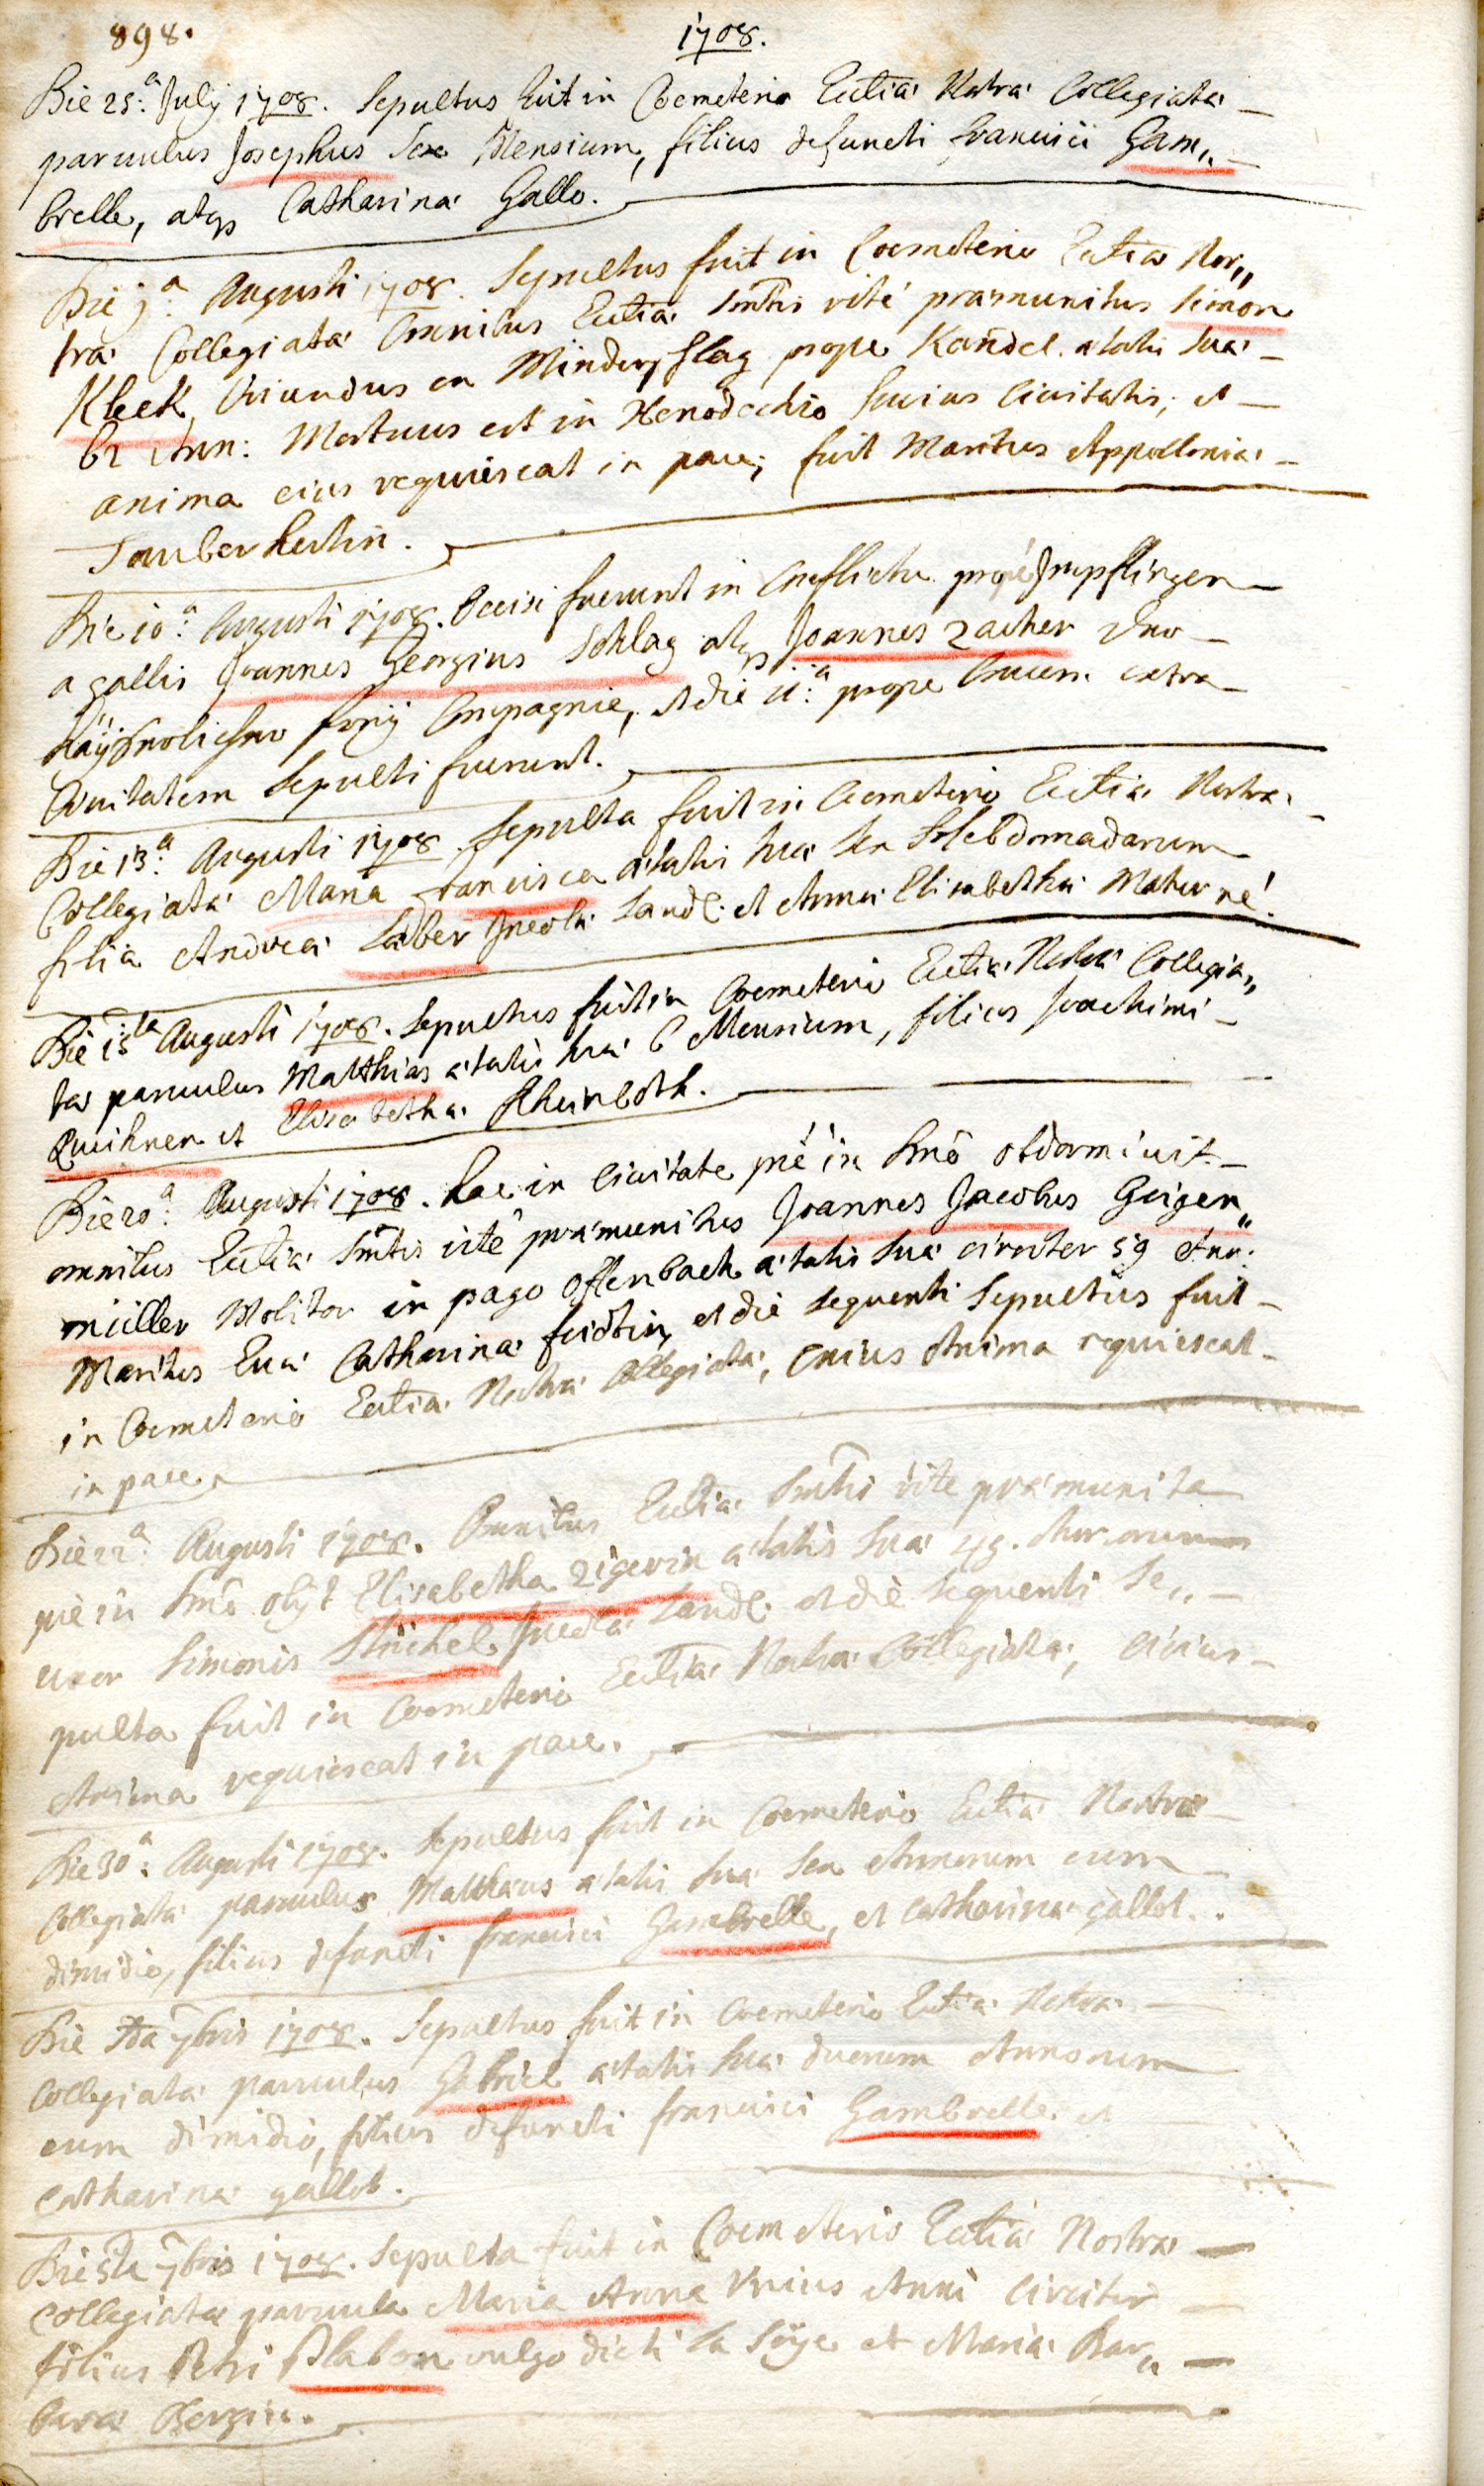 898.
1708.
Die 25.ª July 1708. Sepultus fuit in Coemeterio Eccliæ Nræ Collegiatæ
parvulus Josephus Sex Mensium, filius defuncti francisci Gam„
brelle, atqs Catharinæ Gallo.
Die 9.ª Augusti 1708. Sepultus fuit in Coemeterio Eccliæ Nos„
træ Collegiatæ Omnibus Eccliæ Smtis rité præmunitus Simon
Kleek Oriundus ex Minderslag prope Kandel ætatis suæ
62 Ann: Mortuus est in Xenodochio huius Civitatis, et
anima eius requiescat in pace; fuit Maritus Appolloniæ
Tauberhertin.
Die 10.ª Augusti 1708. Occisi fuerunt in Conflictu propé Impflingen
a gallis Joannes Georgius Schlag atqs Joannes Zacher
Compagnie, et die 11.ª prope Crucem extra
Civitatem Sepulti fuerunt.
Die 13.ª Augusti 1708. Sepulta fuit in Coemeterio Eccliæ Nostræ
Collegiatæ Maria francisca ætatis suæ sex Hebdomadarum
filia Andreæ Laber Incolæ Land: et Annæ Elisabethæ Maturné.
Die 15ta Augusti 1708. Sepultus fuit in Coemeterio Eccliæ Nostræ Collegia„
tæ parvulus Matthias ætatis suæ 6 Mensium, filius Joachimi
Quihner et Elisabethæ Rheinboth.
Die 20.ª Augusti 1708. hac in Civitate pié in Dno obdormivit
omnibus Eccliæ Smtis rité præmunitus Joannes Jacobus Geigen„
müller Molitor in pago Offenbach ætatis suæ circiter 59 Ann:
Maritus Evæ Catharinæ et die sequenti Sepultus fuit
in Coemeterio Eccliæ Nostræ Collegiatæ, Cuius Anima requiescat
in pace.
Die 22.ª Augusti 1708. Omnibus Eccliæ Smtis rite præmunita
pié in Dno obijt Elisabetha Zigerin ætatis suæ 49. Annorum
uxor Simonis Stüchel Incolæ Land: et die sequenti Se„
pulta fuit in Coemeterio Eccliæ Nostræ Collegiatæ, Cuius
Anima requiescat in pace.
Die 30.ª Augusti 1708. Sepultus fuit in Coemeterio Eccliæ Nostræ
Collegiatæ parvulus Matthæus ætatis suæ Sex Annorum cum
dimidio, filius defuncti francisci Gambrelle, et Catharinæ gallot.
Die 7bris 1708. Sepultus fuit in Coemeterio Eccliæ Nostræ
Collegiatæ parvulus Gabriel ætatis suæ duorum Annorum
cum dimidio, filius defuncti francisci Gambrelle et
Catharinæ gallot.
Die 5ta 7bris 1708. Sepulta fuit in Coemeterio Eccliæ Nostræ
Collegiatæ parvula Maria Anna Unius Anni Circiter
filius Petri Plabon vulgo dicti la Söye et Mariæ Bar„
baræ Bergin.